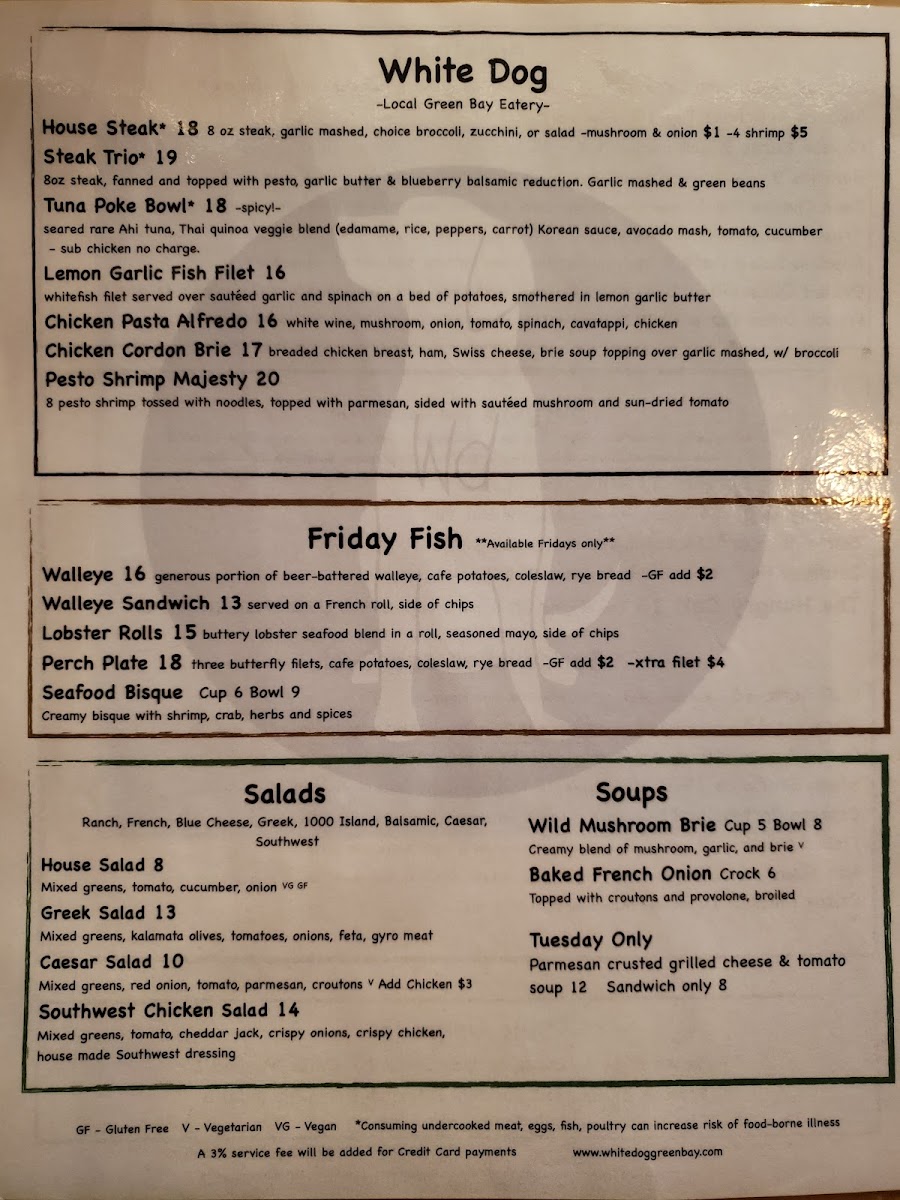 White Dog
-Local Green Bay Eatery-
House Steak* 18 8 oz steak, garlic mashed, choice broccoli, zucchini, or salad -mushroom & onion $1 -4 shrimp $5
Steak Trio* 19
8oz steak, fanned and topped with pesto, garlic butter & blueberry balsamic reduction. Garlic mashed & green beans
Tuna Poke Bowl* 18 -spicy!-
seared rare Ahi tuna, Thai quinoa veggie blend (edamame, rice, peppers, carrot) Korean sauce, avocado mash, tomato, cucumber
- sub chicken no charge.
Lemon Garlic Fish Filet 16
whitefish filet served over sautéed garlic and spinach on a bed of potatoes, smothered in lemon garlic butter
Chicken Pasta Alfredo 16 white wine, mushroom, onion, tomato, spinach, cavatappi, chicken
Chicken Cordon Brie 17 breaded chicken breast, ham, Swiss cheese, brie soup topping over garlic mashed, w/ broccoli
Pesto Shrimp Majesty 20
8 pesto shrimp tossed with noodles, topped with parmesan, sided with sautéed mushroom and sun-dried tomato
Wd
Friday Fish **Available Fridays only**
Walleye 16 generous portion of beer-battered walleye, cafe potatoes, coleslaw, rye bread -GF add $2
Walleye Sandwich 13 served on a French roll, side of chips
Lobster Rolls 15 buttery lobster seafood blend in a roll, seasoned mayo, side of chips
Perch Plate 18 three butterfly filets, cafe potatoes, coleslaw, rye bread -GF add $2 -xtra filet $4
Seafood Bisque Cup 6 Bowl 9
Creamy bisque with shrimp, crab, herbs and spices
Salads
Ranch, French, Blue Cheese, Greek, 1000 Island, Balsamic, Caesar,
Southwest
House Salad 8
Mixed greens, tomato, cucumber, onion VG GF
Greek Salad 13
Mixed greens, kalamata olives, tomatoes, onions, feta, gyro meat
Caesar Salad 10
Mixed greens, red onion, tomato, parmesan, croutons V Add Chicken $3
Southwest Chicken Salad 14
Mixed greens, tomato, cheddar jack, crispy onions, crispy chicken,
house made Southwest dressing
Soups
Wild Mushroom Brie Cup 5 Bowl 8
Creamy blend of mushroom, garlic, and brie V
Baked French Onion Crock 6
Topped with croutons and provolone, broiled
Tuesday Only
Parmesan crusted grilled cheese & tomato
soup 12 Sandwich only 8
GF - Gluten Free V - Vegetarian VG - Vegan *Consuming undercooked meat, eggs, fish, poultry can increase risk of food-borne illness
A 3% service fee will be added for Credit Card payments www.whitedoggreenbay.com